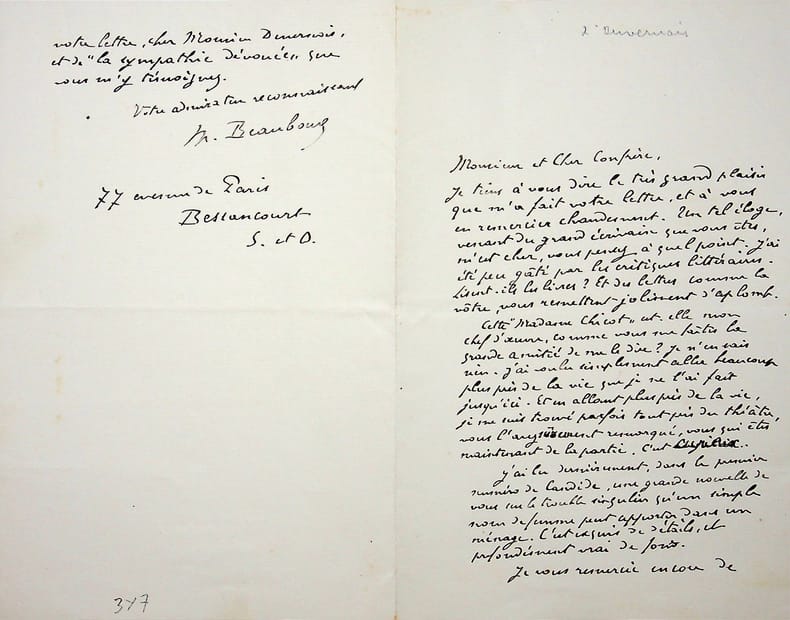 d'Duvernois
Monsieur et Cher Confrère,
Je tiens à vous dire le très grand plaisir
que m'a fait votre lettre, et à vous
en remercier chaudement. Un tel éloge,
venant du grand écrivain que vous êtes,
m'est cher, vous pensez à quel point. J'ai
été peu gâté par les critiques littéraires.
Lisent-ils les livres ? Et des lettres comme la
vôtre, vous remettent joliment d'aplomb.
Cette "Madame Chicot" est-elle mon
chef d'œuvre, comme vous me faites la
grande amitié de me le dire ? Je n'en sais
rien. J'ai voulu simplement aller beaucoup
plus près de la vie que je ne l'ai fait
jusqu'ici. Et en allant plus près de la vie,
je me suis trouvé parfois tout près du théâtre,
vous l'avez remarqué, vous qui êtes
maintenant de la partie. C'est
J'ai lu dernièrement, dans le premier
numéro de Candide, une grande nouvelle de
vous sur le trouble singulier qu'un simple
nom de femme peut apporter dans un
ménage. C'est exquis de détails, et
profondément vrai de fond.
Je vous remercie encore de
votre lettre, cher Monsieur Duvernois,
et de "la sympathie dévouée" que
vous m'y témoignez.
Votre admirateur reconnaissant
M. Beaubourg
77 avenue de Paris
Bessancourt
S. et O.
347